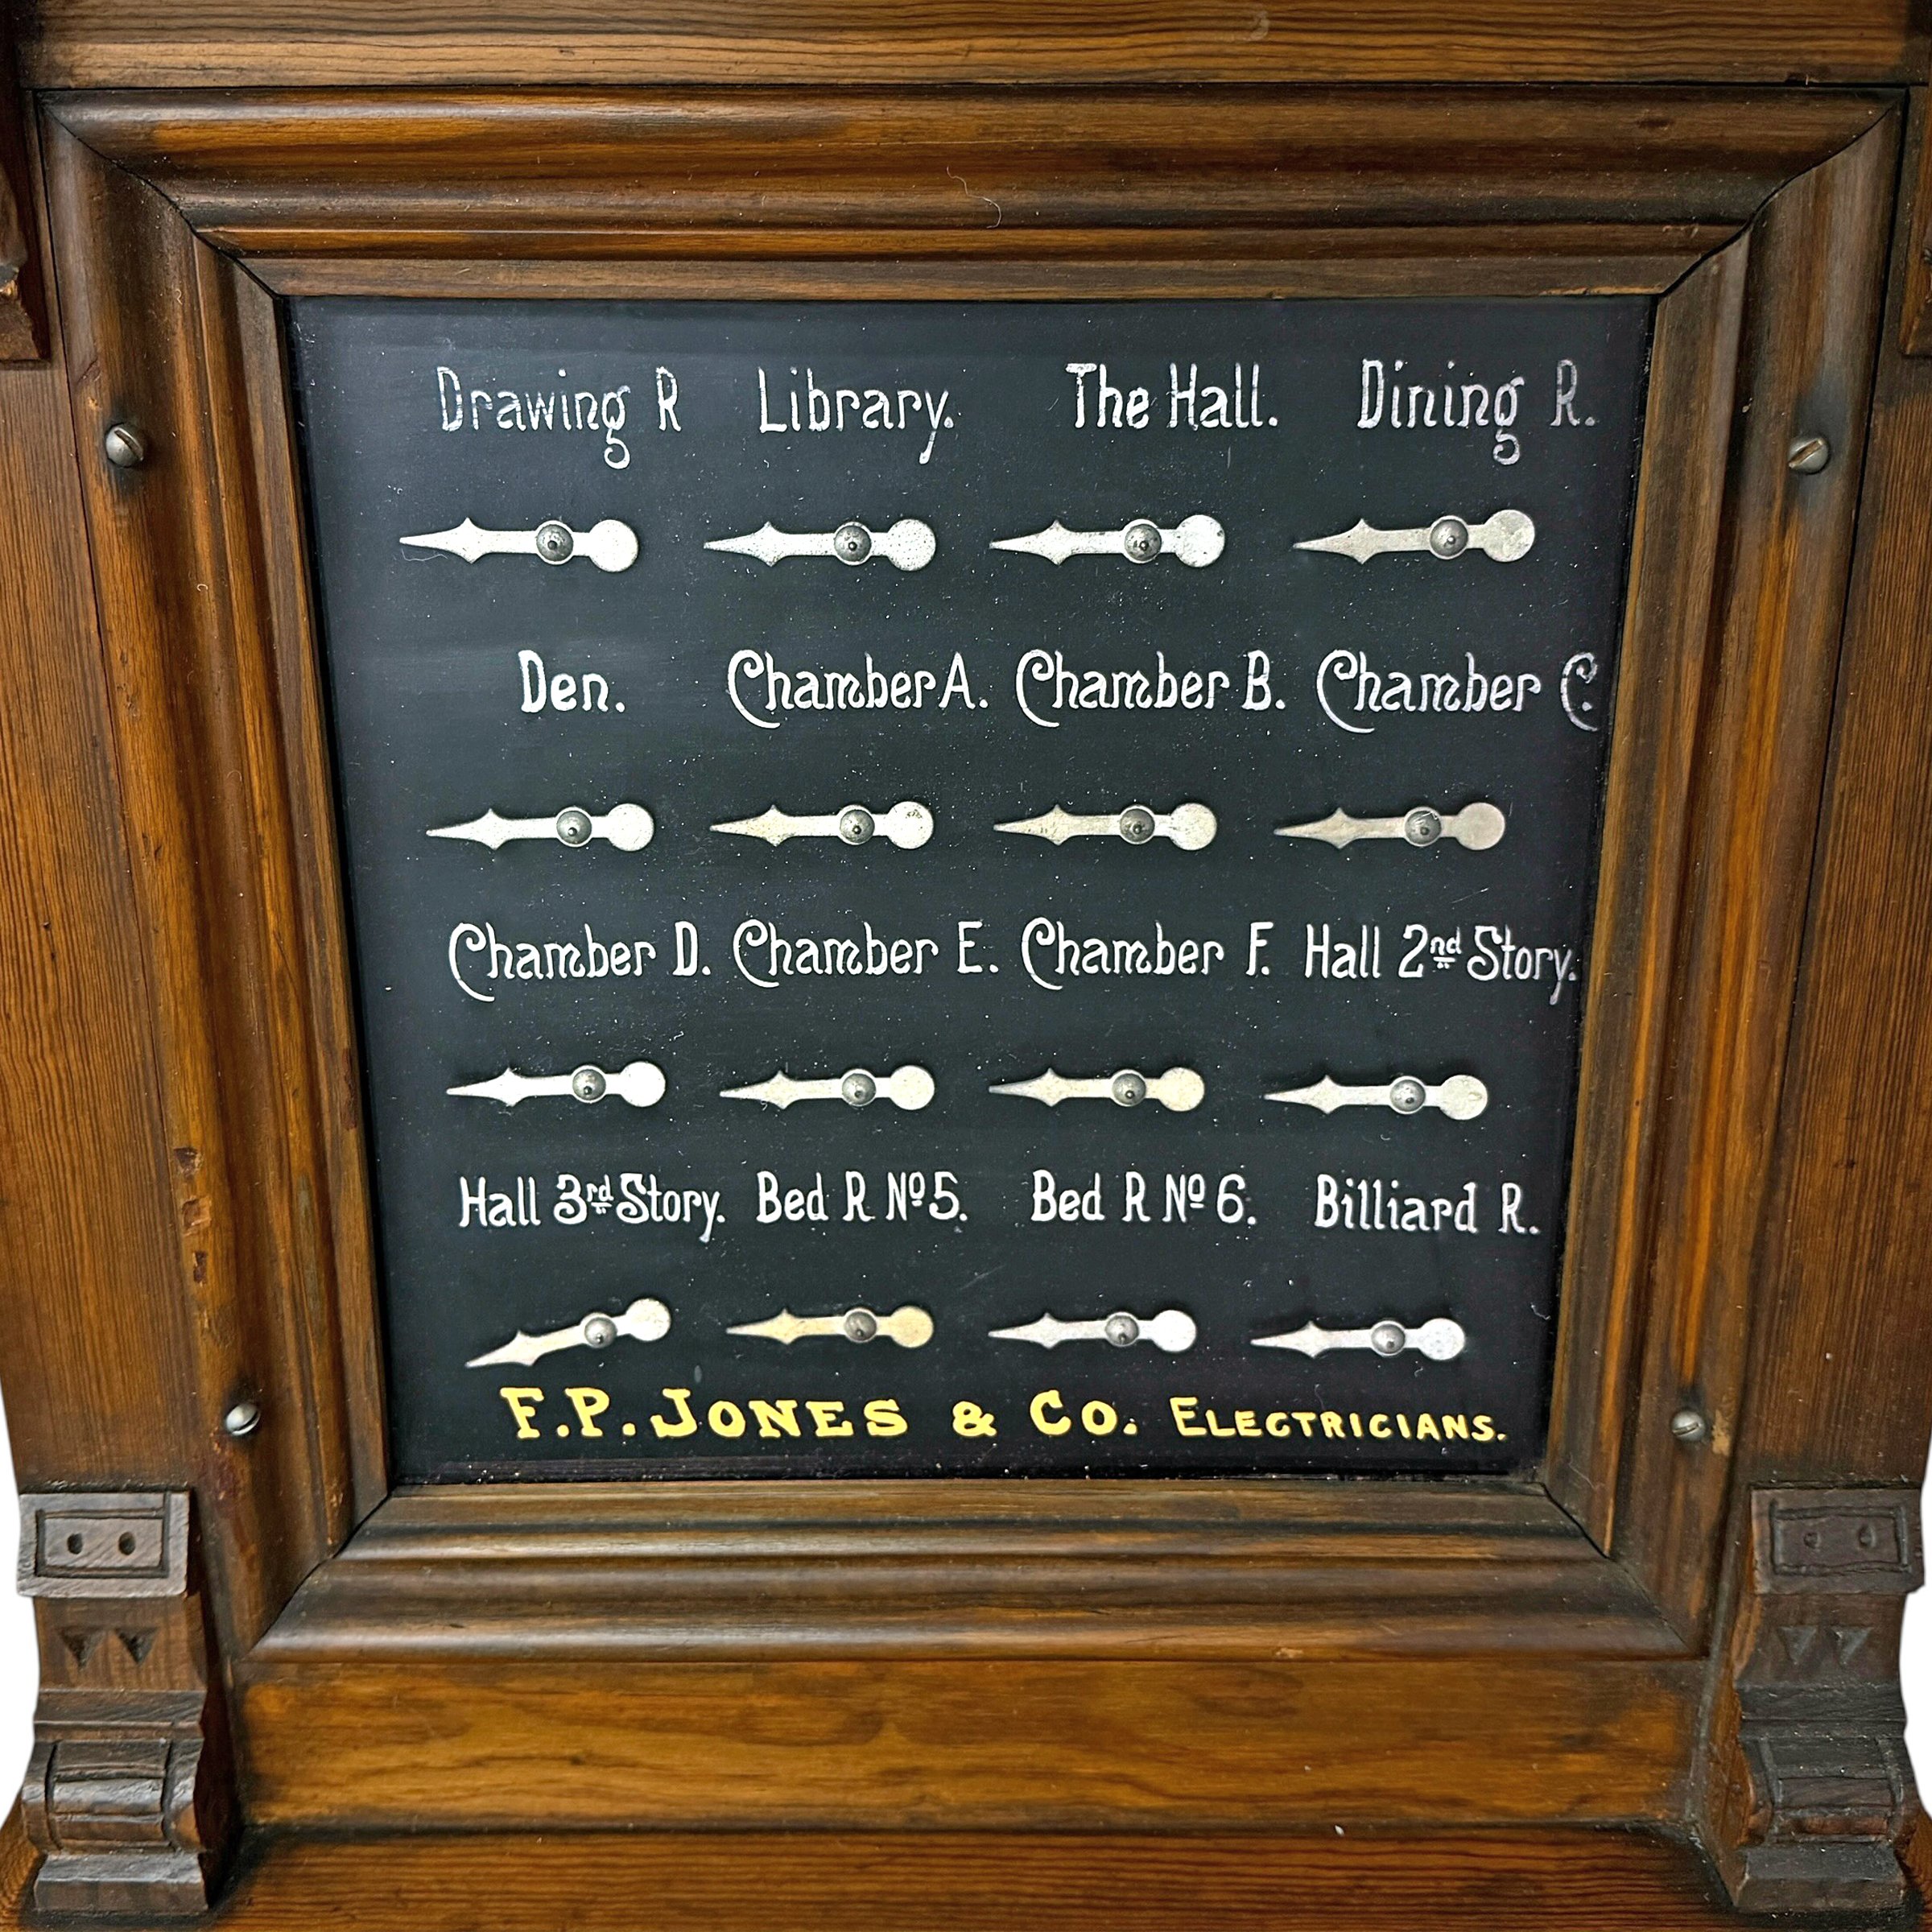 Drawing R Library. The Hall. Dining R.
Den. Chamber A. Chamber B. Chamber C.
Chamber D. Chamber E. Chamber F. Hall 2nd Story.
Hall 3rd Story. Bed R Nº 5. Bed R Nº 6. Billiard R.
F.P. JONES & CO. ELECTRICIANS.